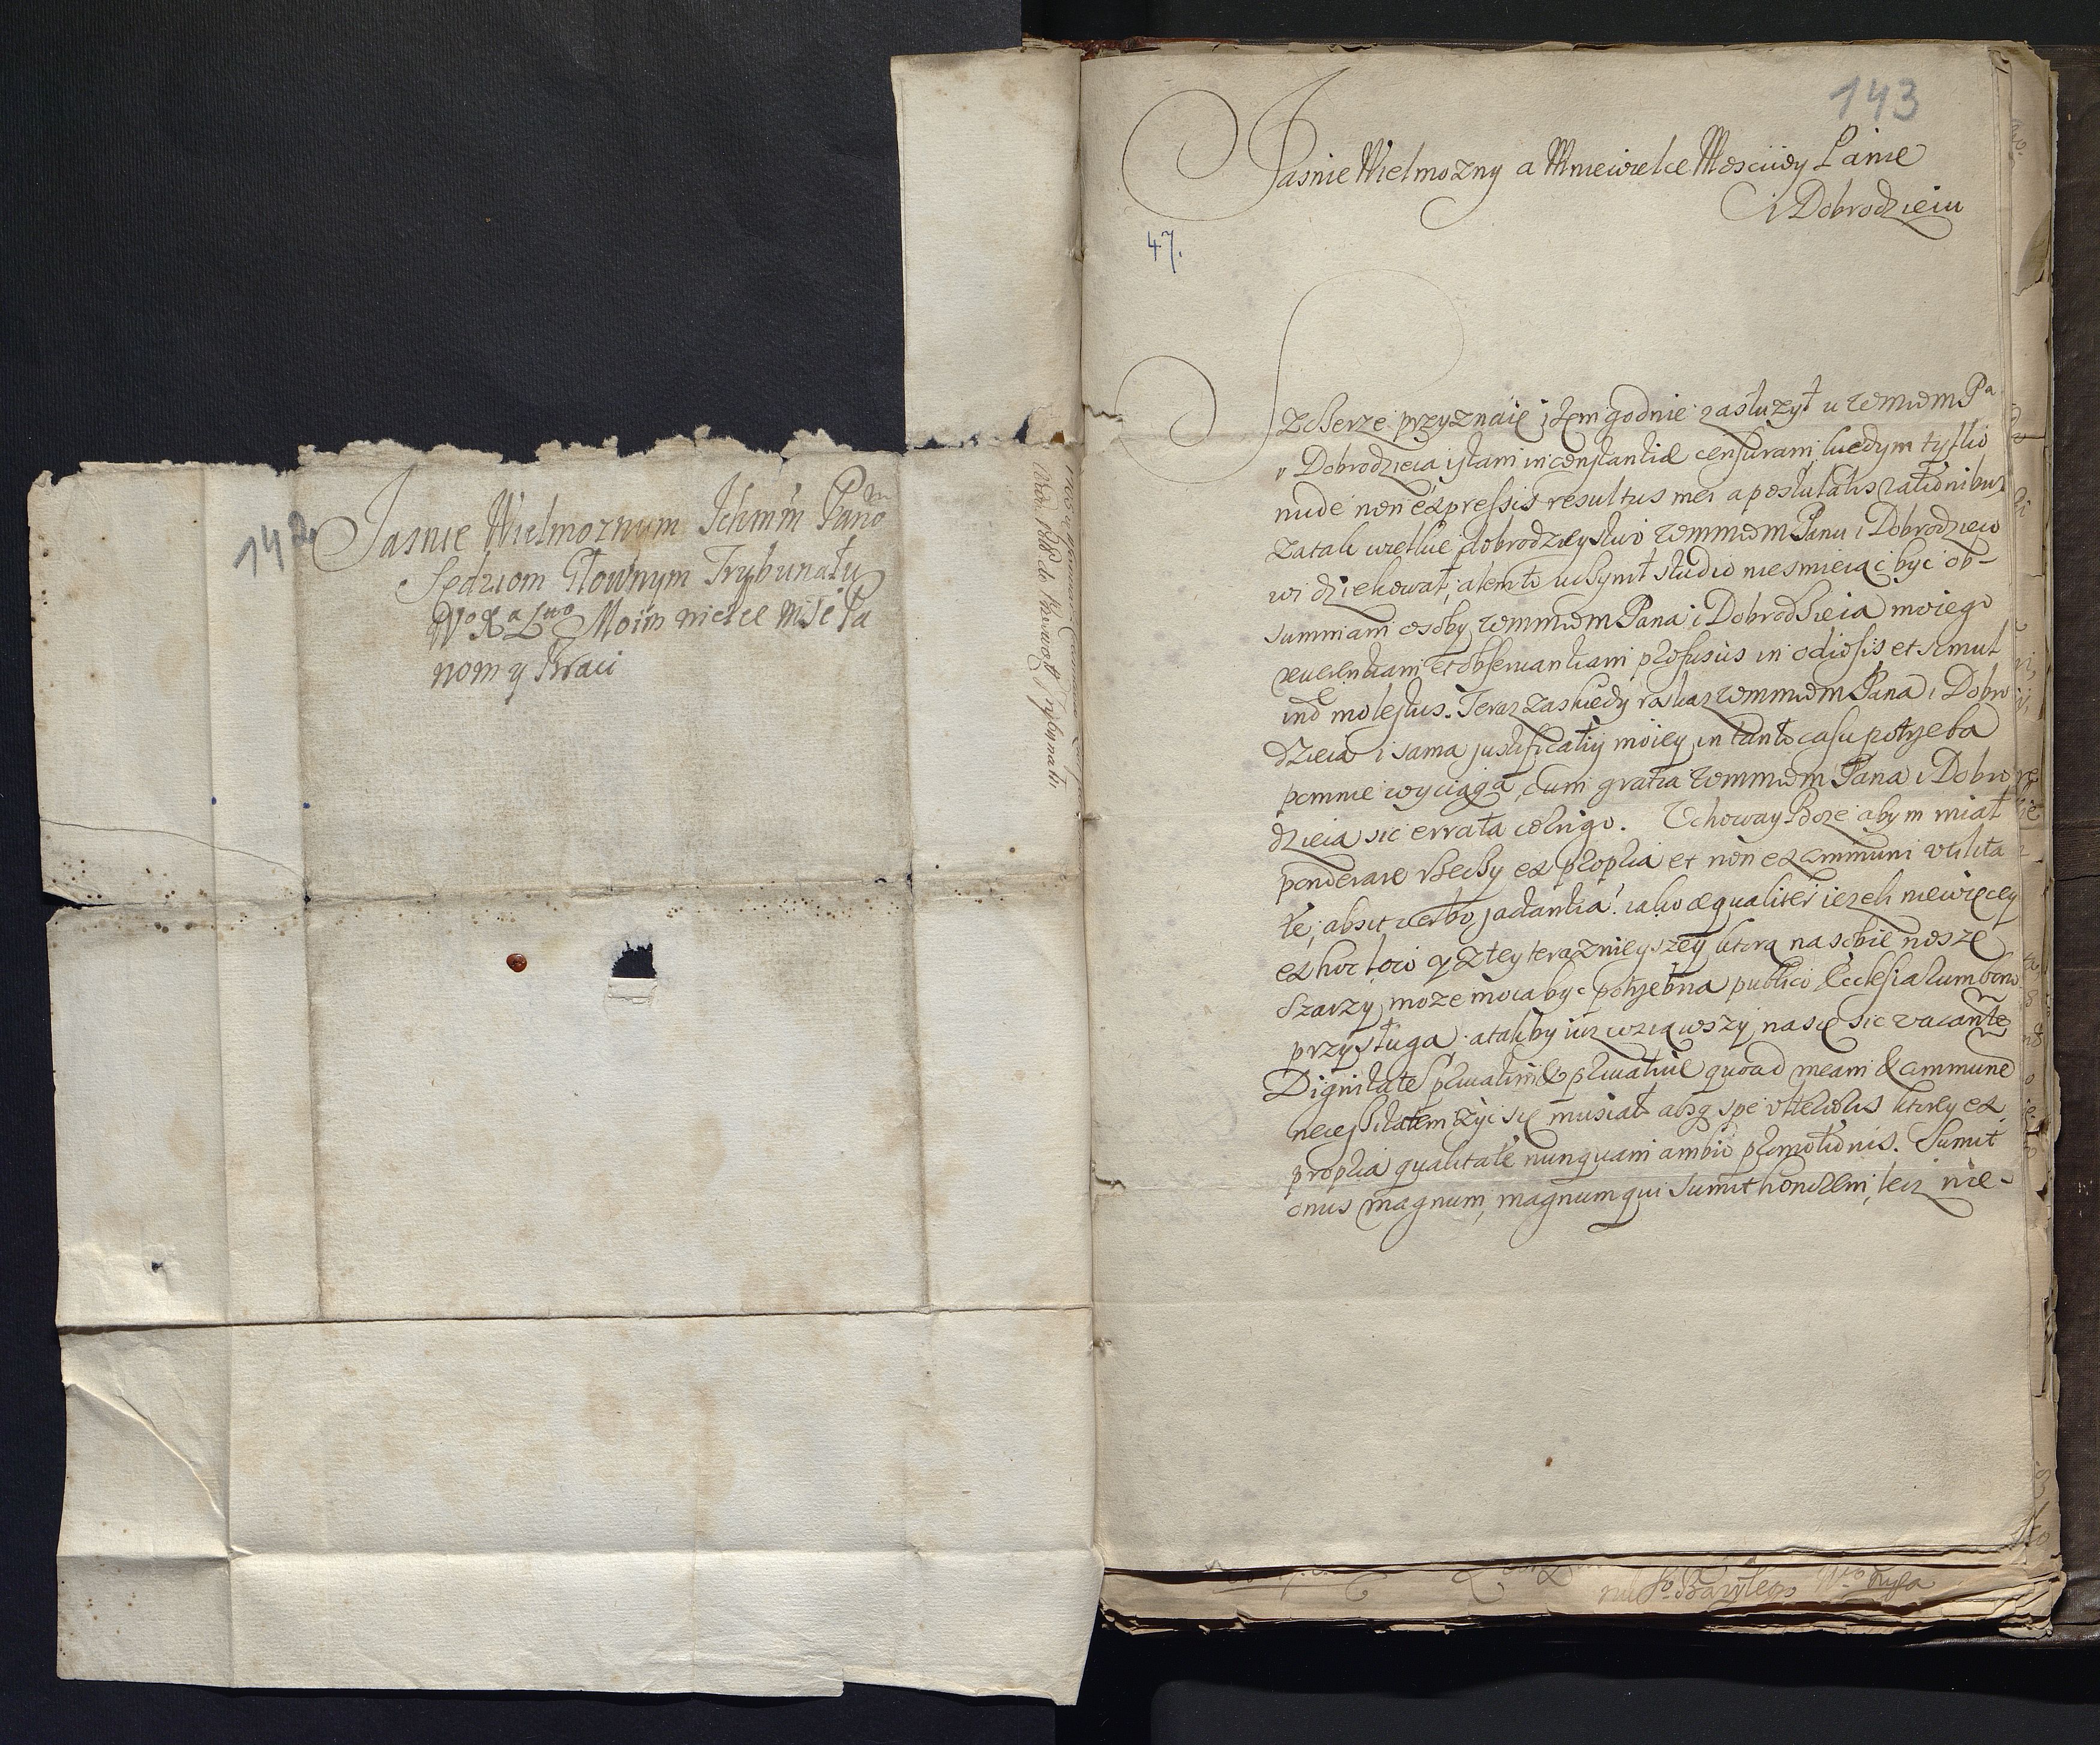 142
Jasnie Wielmoznym Ichmm Pano
Sędziom Głownym Trybunału
Wo Xa Lwo Moim wielce Mśe Pa
nom y Braci
143
Jasnie Wielmozny a Mnewielce Mosciwy Panie
i Dobrodzieiu
47.
przyznaię iżem godnie zasłuzył u wmmwm Pa
Dobrodzieia istam inconstantiæ censuram, kiedym tylko
nude non expressis resultus mei a postulatis rationibus
za tak wielkie dobrodzieystwo wmmwm Panu i Dobrodzieio
wi dziękował, alem to uczynił studio nie smieiąc być ob-
summam osoby wmmwm Pana i Dobrodzieia moiego
reuerentiam et obseruantiam profusus in odiosis et simul
molestus. Teraz zas kiedy roskaz wmmwm Pana i Dobro
dzieia i sama justificatiy moiey in tanto casu potrzeba
pomnie wyciąga, cum gratia wmmwm Pana i Dobro
dzieia sic errata corrigo. Uchoway Boze abym miał
ponderare rzeczy ex propria et non ex communi vtilita
te, absit verbo jactantia! iako æqualiter iezeli niewięcey
ex hoc loco y z tey teraznieyszey ktorą na sobie noszę
Szarzy moze moia byc potrzebna publico Ecclesiarum bono
przysługa. a takby iuz wziąwszy na się sic vacante
Dignitate priuatim & priuatiue quoad meam & commune
necessitatem zyc się musiał absq spe vlterioris ktorey ex
propria qualitate nunquam ambio promotionis. Sumit
onus magnum, magnum qui sumit honorem, lecz nie-